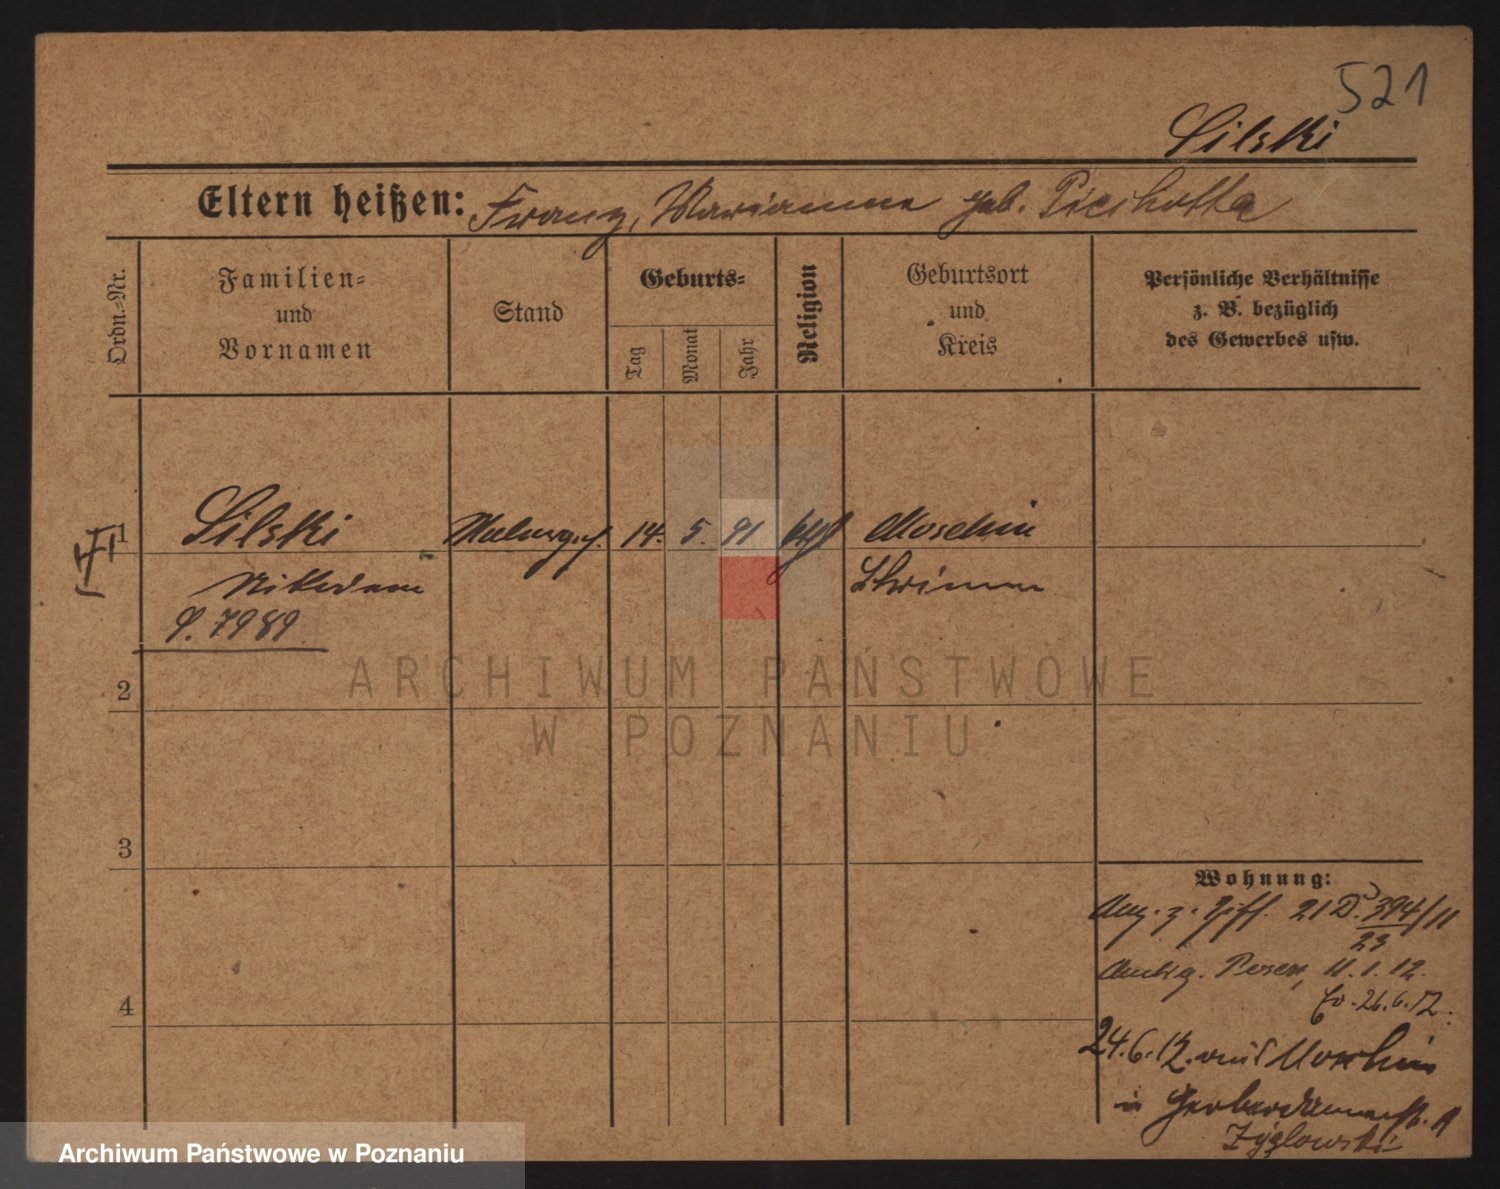 521
Silski
Eltern heißen: Franz, Marianna geb. Piechotta
Ordn.-Nr.
Familien-
und
Vornamen
Stand
Geburts-
Tag
Monat
Jahr
Religion
Geburtsort
und
Kreis
Persönliche Verhältnisse
z. B. bezüglich
des Gewerbes usw.
1
Silski 14. 5. 91 kath Moschin
Nikodem Schrimm
S. 7989
2
ARCHIWUM PAŃSTWOWE
W POZNANIU
3
Wohnung:
21 D. 394/11
23
Posen, 11.1.12.
26.6.12.
24.6.12. aus Moschin
in 11
Zyglowski
4
Archiwum Państwowe w Poznaniu